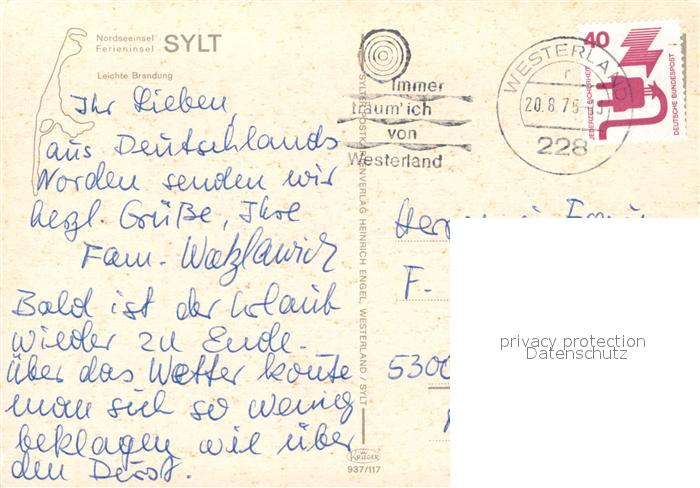 Nordseeinsel
Ferieninsel SYLT
Leichte Brandung
Ihr Lieben,
aus Deutschlands
Norden senden wir
herzl. Grüße, Ihre
Fam. Watzlawick
Bald ist der Urlaub
wieder zu Ende.
Über das Wetter konnte
man sich so wenig
beklagen wie über
den Durst.
SYLTER POSTKARTENVERLAG HEINRICH ENGEL, WESTERLAND / SYLT
KRÜGER
937/117
Immer
träum' ich
von
Westerland
WESTERLAND
20.8.75
228
40
JEDERZEIT SICHERHEIT
DEUTSCHE BUNDESPOST
Herrn
F.
5300
privacy protection
Datenschutz